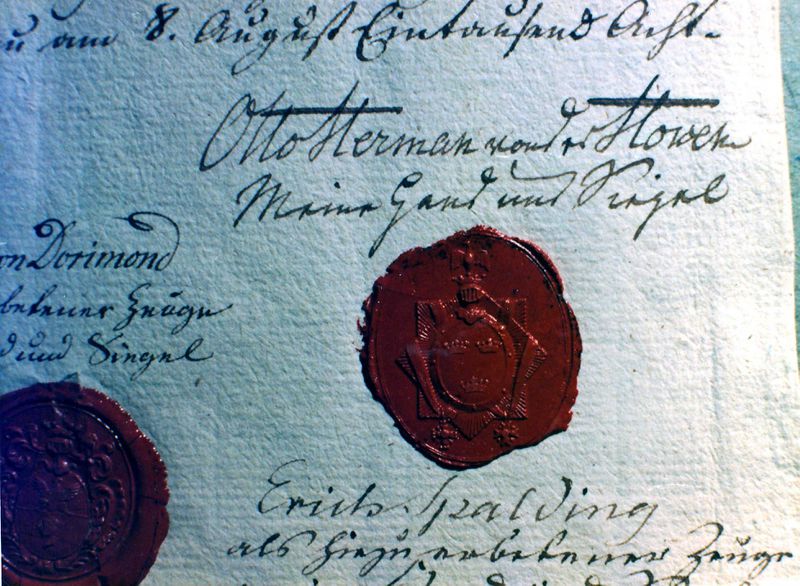 am 8. August Eintausend Acht-
Otto Herman von der Howen
Meine Hand und Siegel
on Dorimond
betener Zeuge
d und Siegel
Erich Spalding
als hiezu erbetener Zeuge